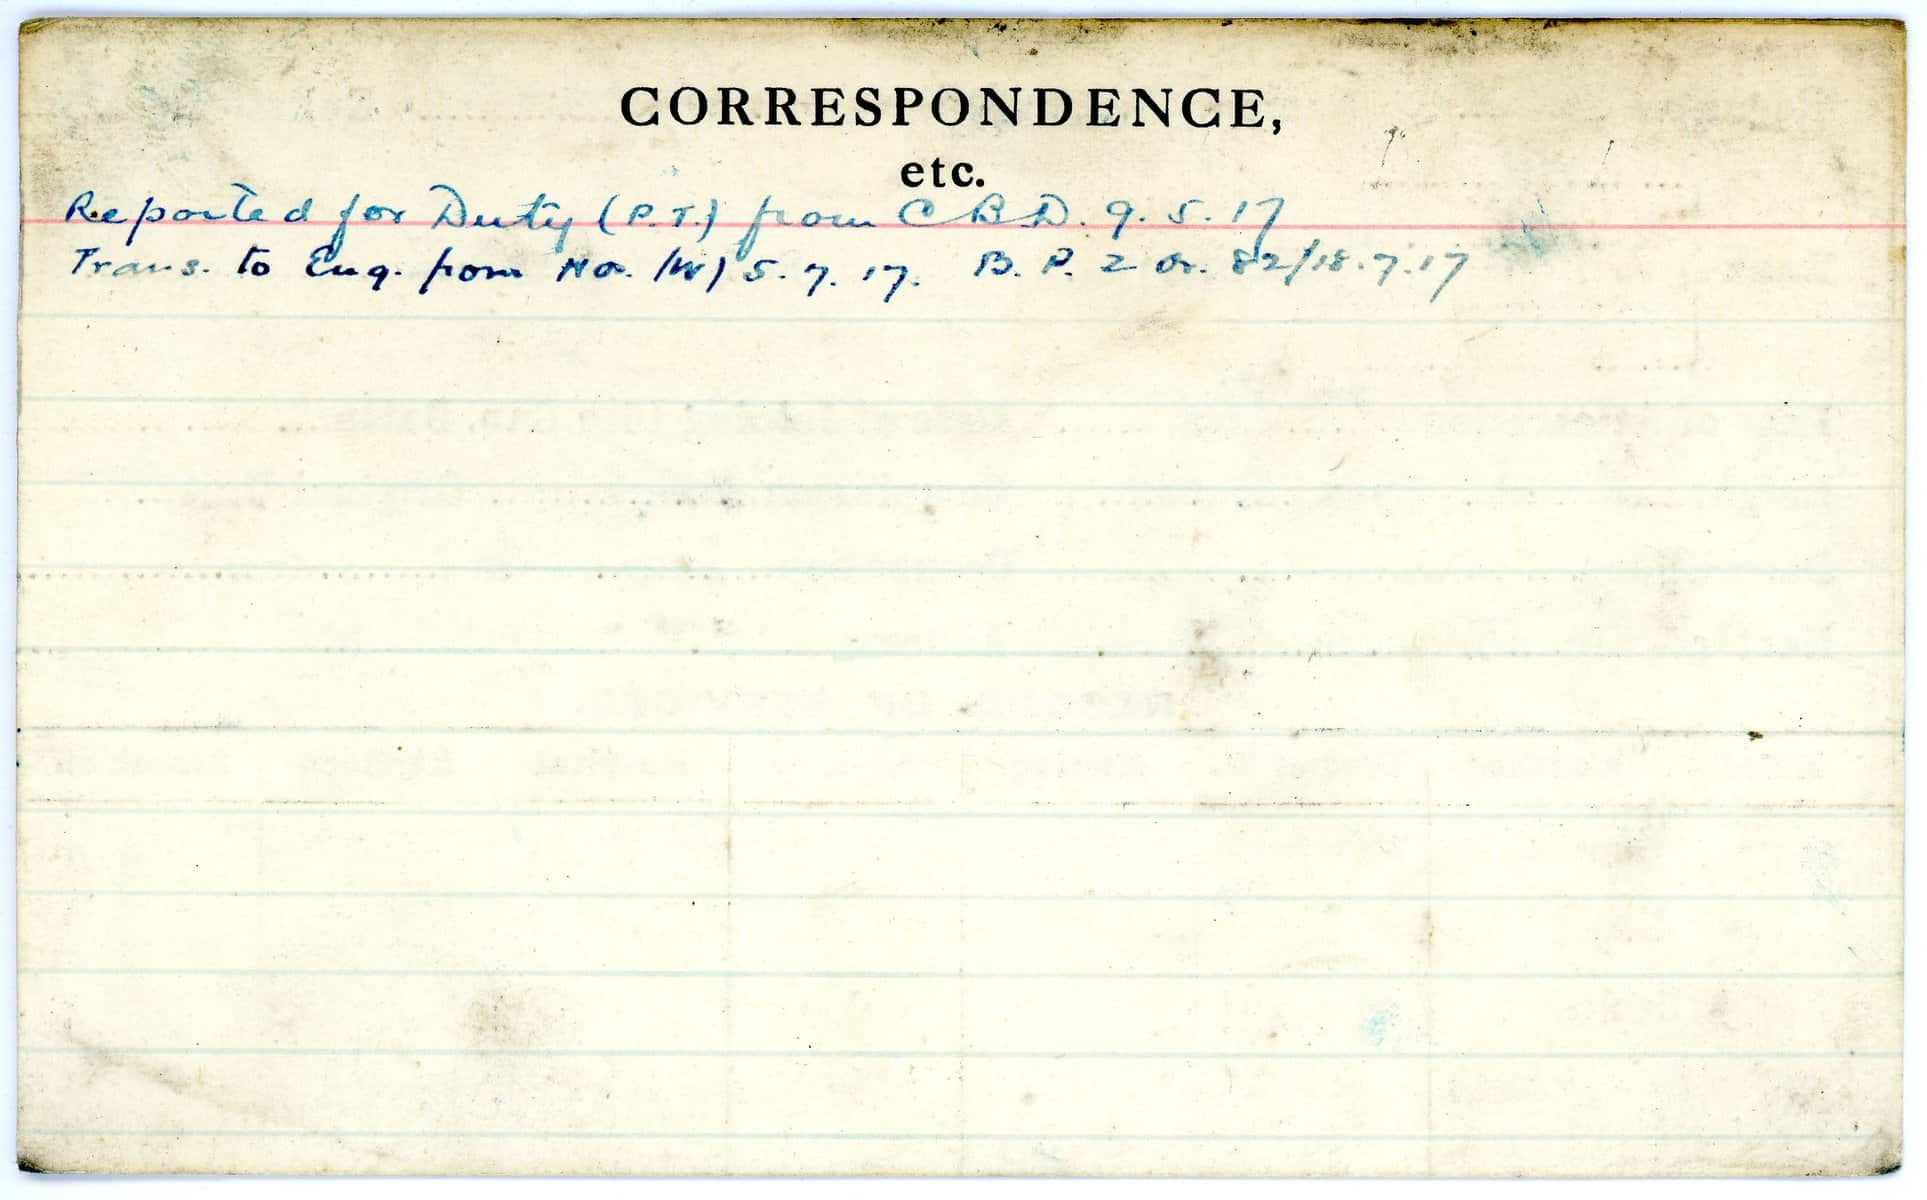 CORRESPONDENCE,
etc.
Reported for Duty (P.T.) from CBD. 9.5.17
Trans. to Eng. from No. (W) 5.7.17. B.P. 2 Or. 82/18.7.17